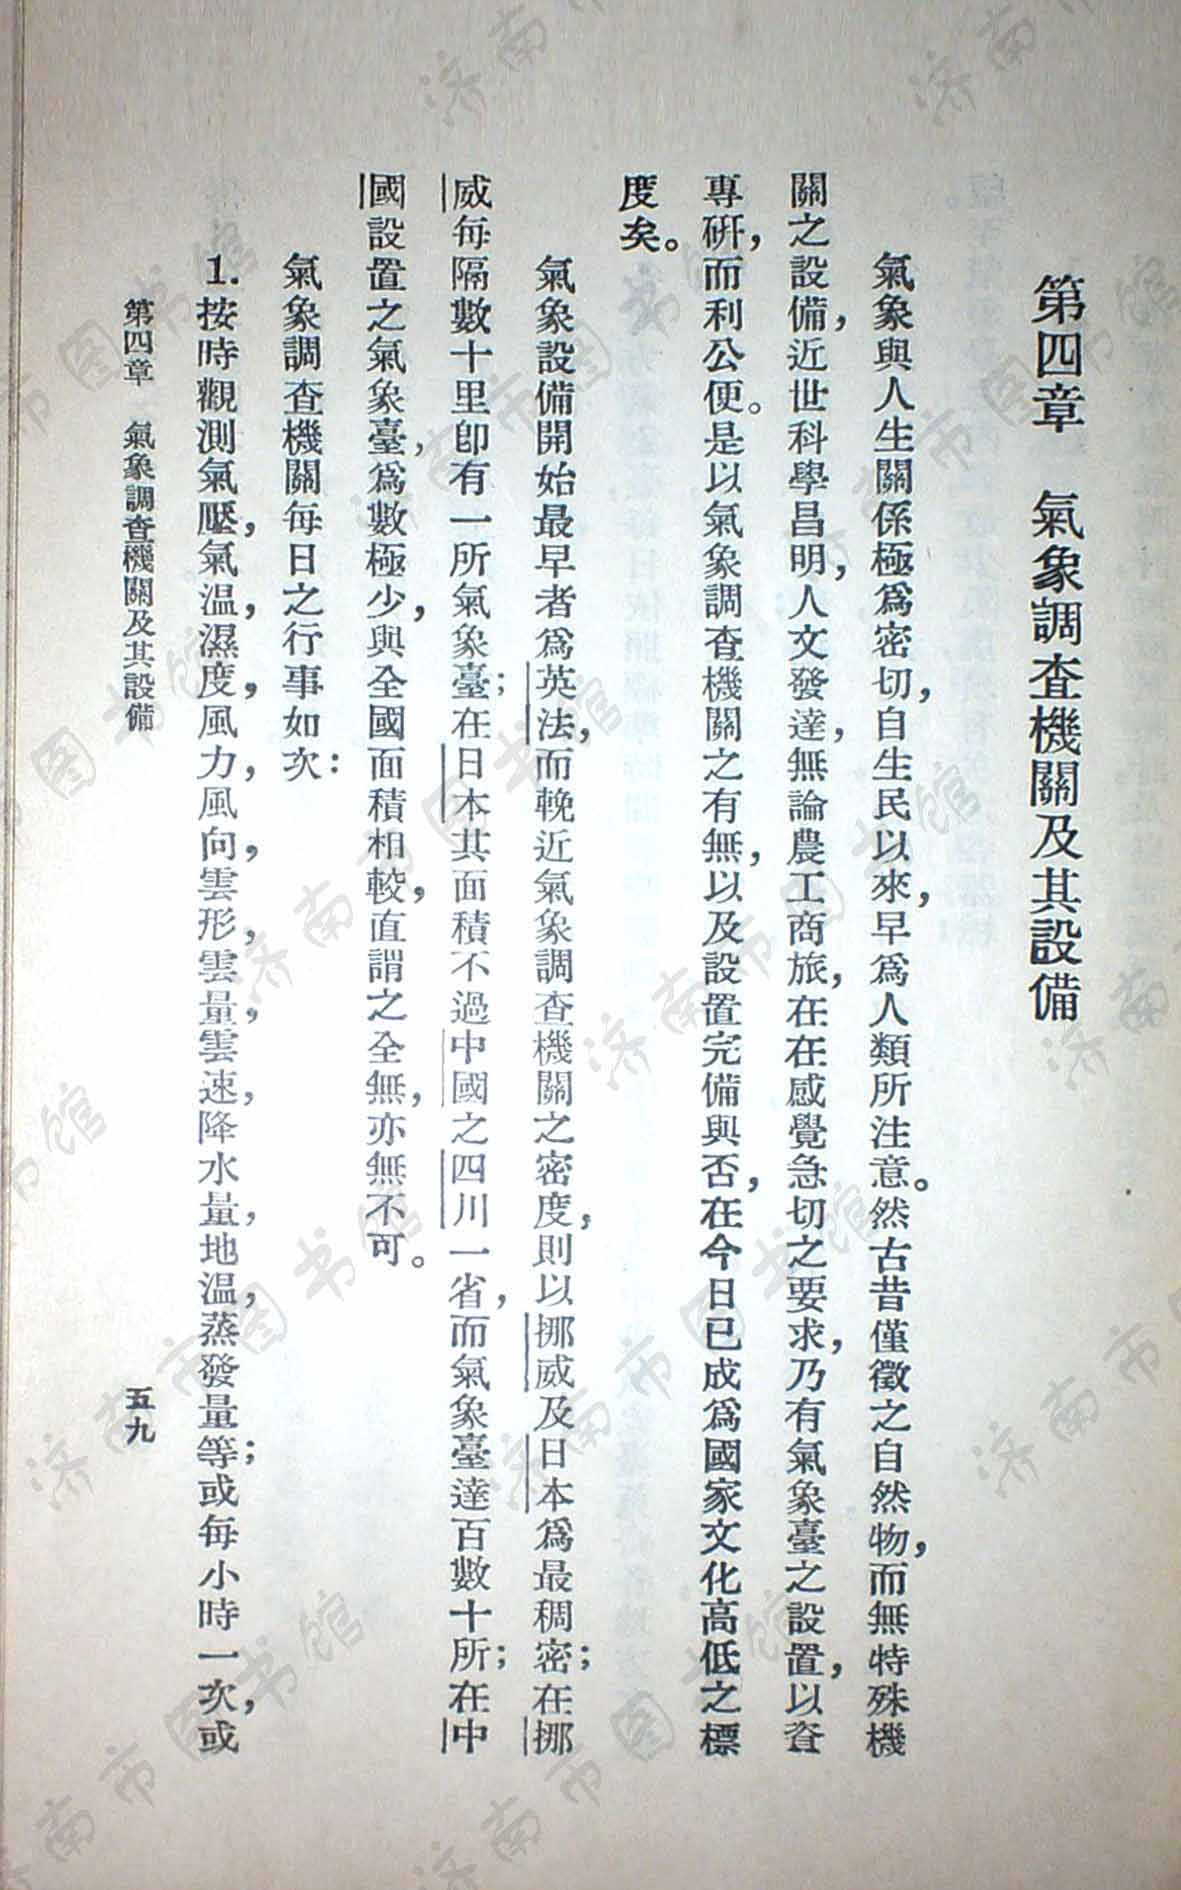 第四章　氣象調査機關及其設備
氣象與人生關係極爲密切，自生民以來，早爲人類所注意。然古昔僅徵之自然物，而無特殊機
關之設備，近世科學昌明，人文發達，無論農工商旅，在在感覺急切之要求，乃有氣象臺之設置，以資
專硏，而利公便。是以氣象調査機關之有無，以及設置完備與否，在今日已成爲國家文化高低之標
度矣。
氣象設備開始最早者爲英法，而輓近氣象調査機關之密度，則以挪威及日本爲最稠密；在挪
威每隔數十里卽有一所氣象臺；在日本其面積不過中國之四川一省，而氣象臺達百數十所；在中
國設置之氣象臺，爲數極少，與全國面積相較，直謂之全無，亦無不可。
氣象調査機關每日之行事如次：
1. 按時觀測氣壓，氣温，濕度，風力，風向，雲形，雲量，雲速，降水量，地温，蒸發量等；或每小時一次，或
第四章　氣象調査機關及其設備
五九
济南市图书馆